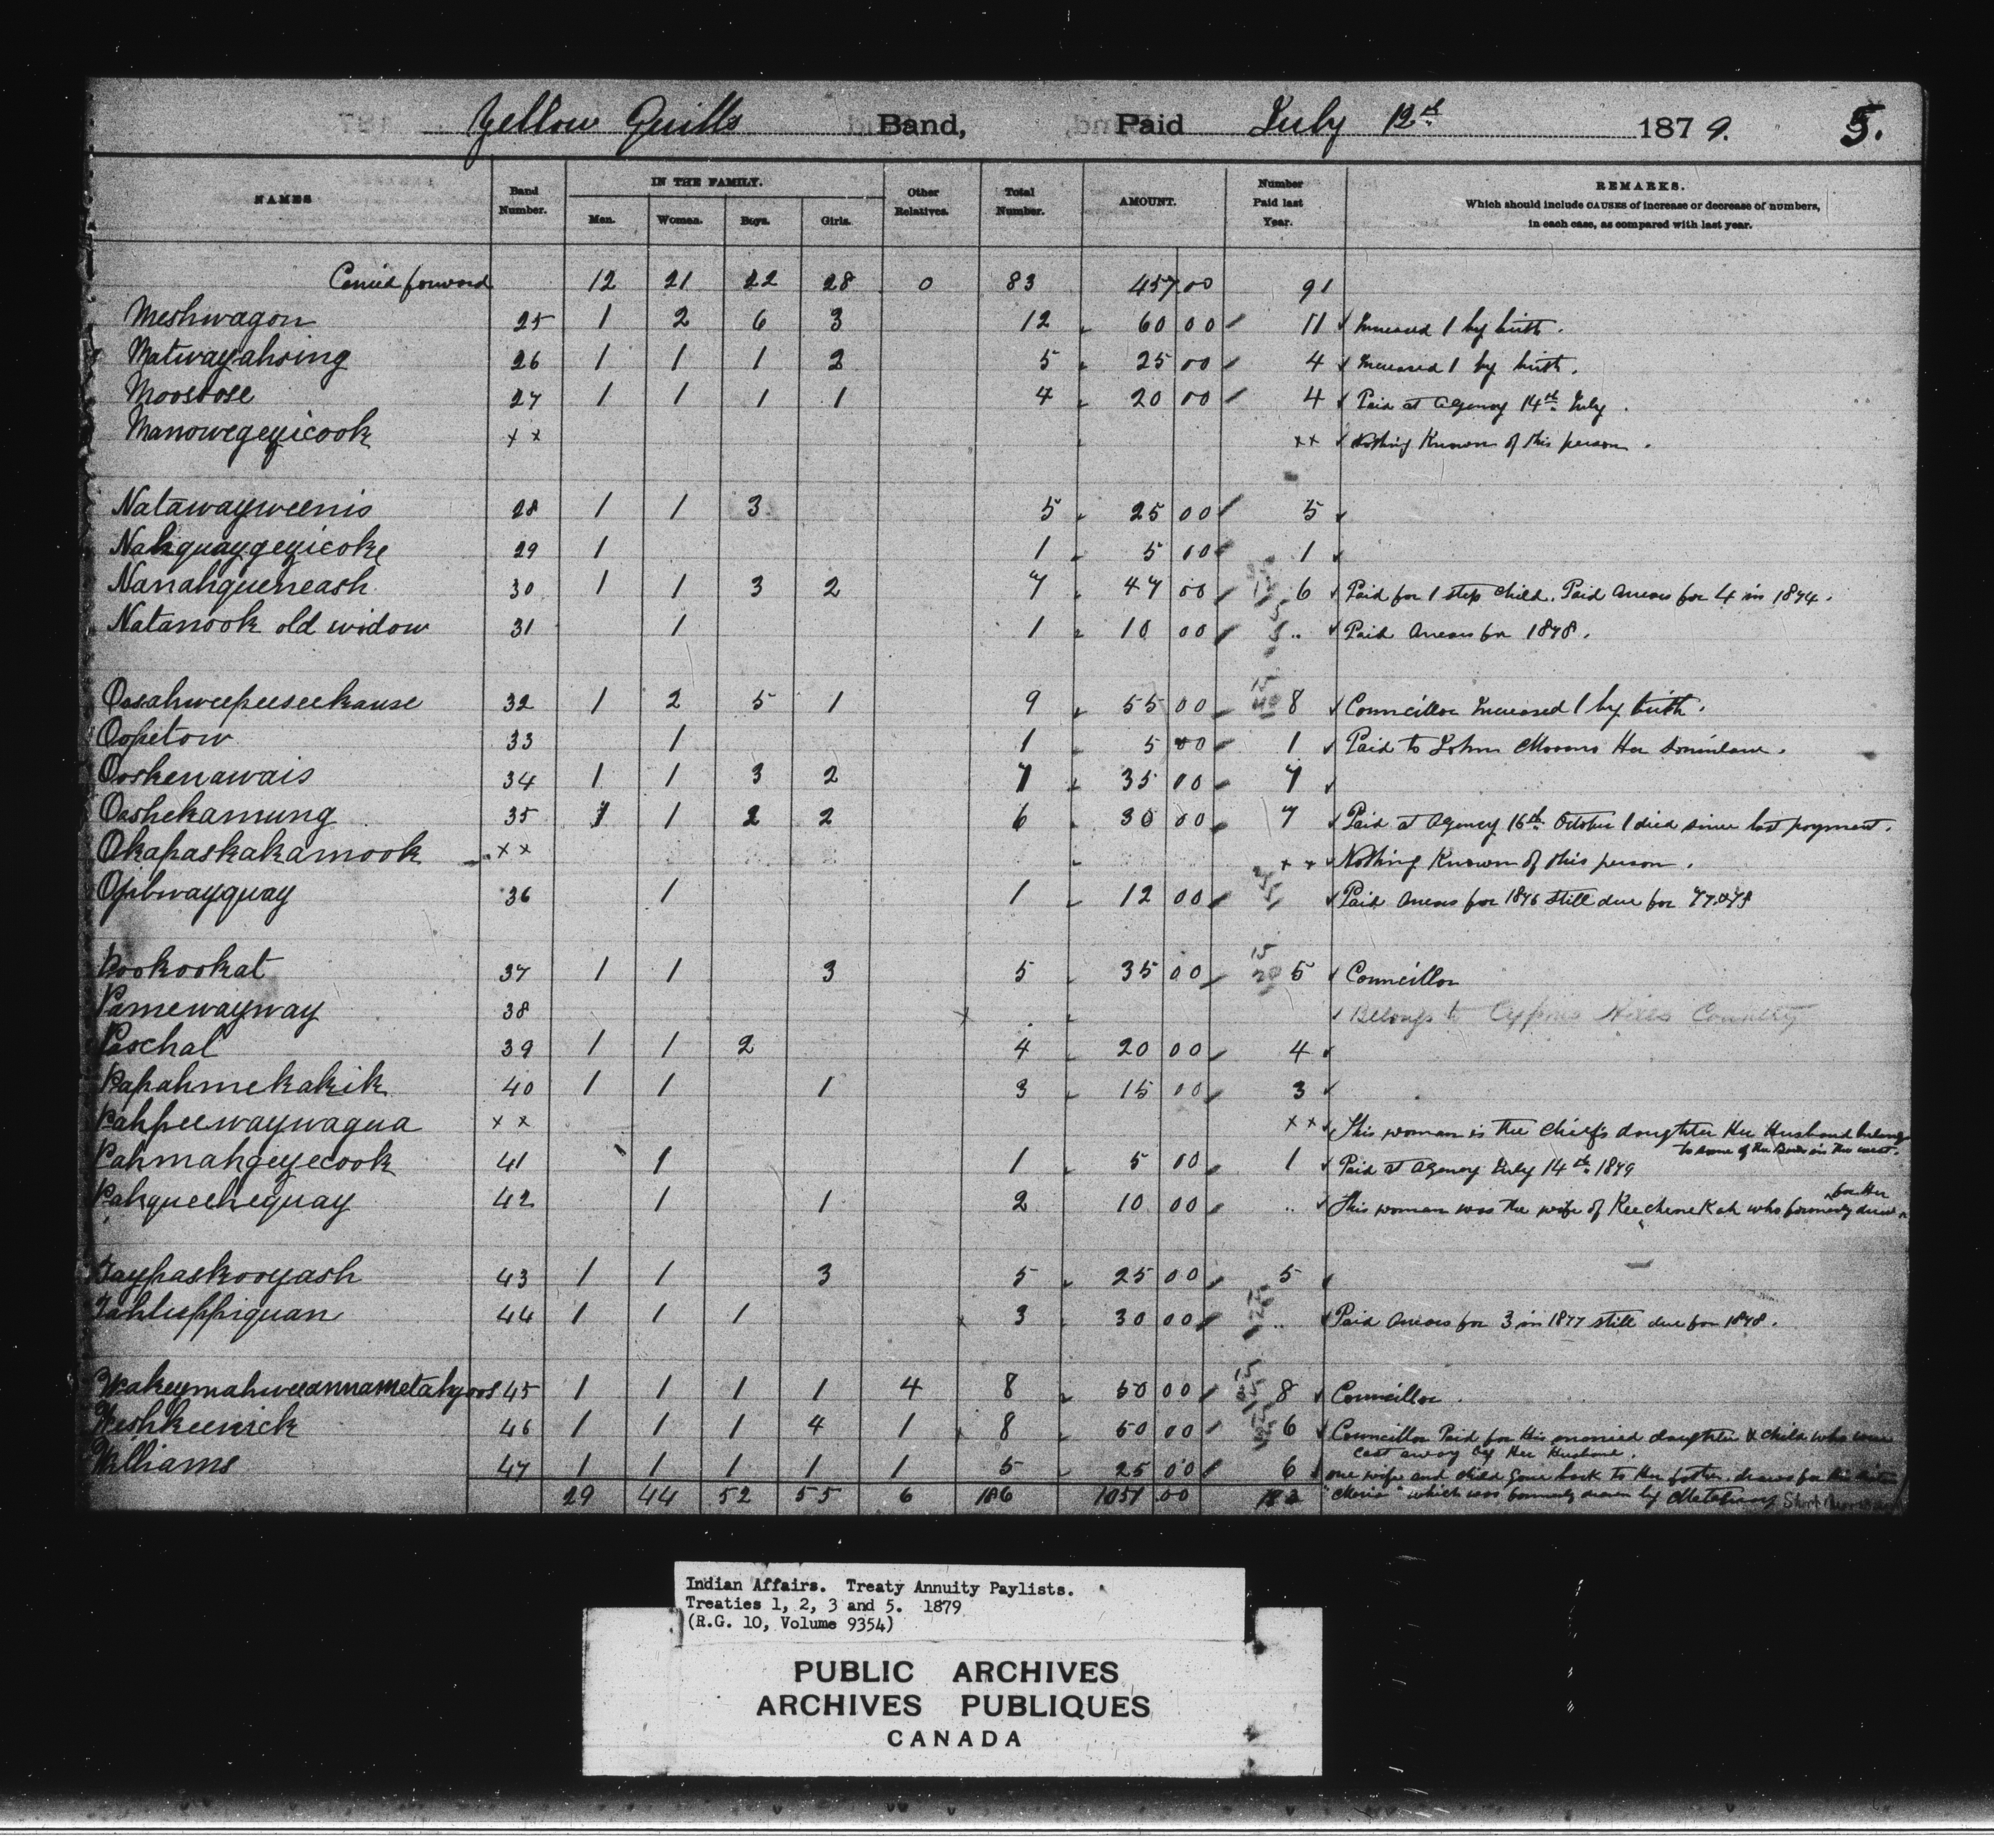 Yellow Quills Band, Paid July 12th 1879. 5.
NAMES Band Number. IN THE FAMILY. Men. Women. Boys. Girls. Other Relatives. Total Number. AMOUNT. Number Paid last Year. REMARKS. Which should include CAUSES of increase or decrease of numbers, in each case, as compared with last year.
Carried forward 12 21 22 28 0 83 457 00 91
Meshwagon 25 1 2 6 3 12 60 00 11 Increased 1 by birth.
Matwayahsing 26 1 1 1 2 5 25 00 4 Increased 1 by birth.
Moostose 27 1 1 1 1 4 20 00 4 Paid at Agency 14th July.
Manowegeyicook x x x x Nothing Known of this person.
Natawayweenis 28 1 1 3 5 25 00 5
Nahquaygeyicoke 29 1 1 5 00 1
Nanahqueneash 30 1 1 3 2 7 47 00 6 Paid for 1 step child. Paid Arrears for 4 in 1874.
Natanook old widow 31 1 1 10 00 .. Paid Arrears for 1878.
Oosahweepeeseekause 32 1 2 5 1 9 55 00 8 Councillor Increased 1 by birth.
Oopetow 33 1 1 5 00 1 Paid to John Her soninlaw.
Ooskenawais 34 1 1 3 2 7 35 00 7
Ooshekamung 35 1 1 2 2 6 30 00 7 Paid at Agency 16th October 1 died since last payment.
Okapaskakamook x x x x Nothing Known of this person.
Ojibwayquay 36 1 1 12 00 Paid Arrears for 1876 still due for 77 & 78
Pookookat 37 1 1 3 5 35 00 5 Councillor
Pamewayway 38 x Belongs to Cypress Hills Country
Paschal 39 1 1 2 4 20 00 4
Papahmekakik 40 1 1 1 3 15 00 3
Pahpeewaywagua x x x x This woman is the Chief's daughter Her Husband belongs
to some of the Bands in the west.
Pahmahgeyecook 41 1 1 5 00 1 Paid at Agency July 14th 1879
Pahqueechequay 42 1 1 2 10 00 .. This woman was the wife of Keechenekah who formerly drew for Her
Taypaskooyash 43 1 1 3 5 25 00 5
Tahtuppiquan 44 1 1 1 3 30 00 .. Paid Arrears for 3 in 1877 still due for 1878.
45 1 1 1 1 4 8 50 00 8 Councillor.
Weshkeenick 46 1 1 1 4 1 8 50 00 6 Councillor Paid for His married daughter & child who were
cast away by Her Husband.
Williams 47 1 1 1 1 1 5 25 00 6 one wife and child gone back to Her father. draws for his sister
29 44 52 55 6 186 1051 00 "Maria" which was formerly drawn by
Indian Affairs. Treaty Annuity Paylists.
Treaties 1, 2, 3 and 5. 1879
(R.G. 10, Volume 9354)
PUBLIC ARCHIVES
ARCHIVES PUBLIQUES
CANADA